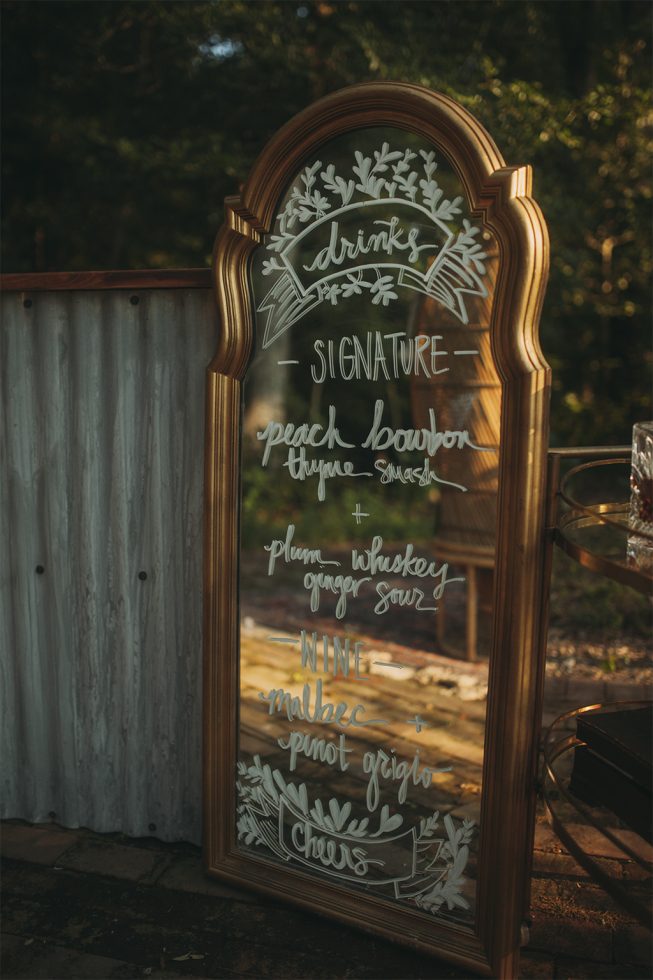 drinks
- SIGNATURE -
peach bourbon
thyme smash
+
plum whiskey
ginger sour
- NINE -
malbec +
pinot grigio
cheers